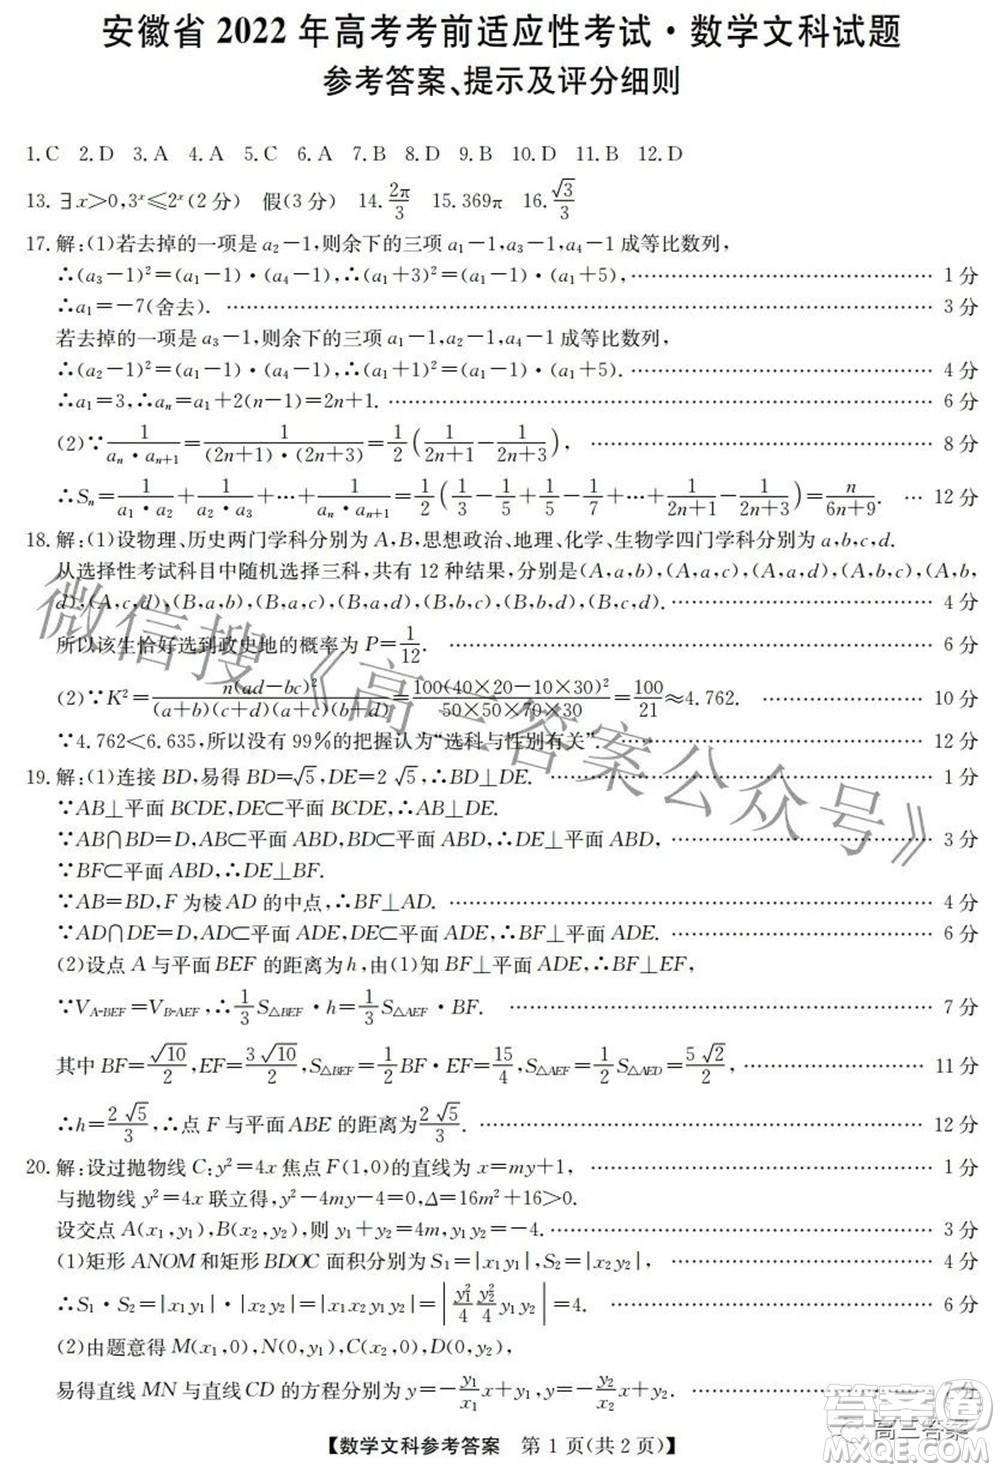 安徽省 2022 年高考考前适应性考试·数学文科试题
参考答案、提示及评分细则
1.C 2.D 3.A 4.A 5.C 6.A 7.B 8.D 9.B 10.D 11.B 12.D
13.∃x>0,3ˣ≤2ˣ(2分) 假(3分) 14.2π/3 15.369π 16.√3/3
17.解:(1)若去掉的一项是 a₂-1,则余下的三项 a₁-1,a₃-1,a₄-1 成等比数列,
∴(a₃-1)²=(a₁-1)·(a₄-1),∴(a₁+3)²=(a₁-1)·(a₁+5),…… 1分
∴a₁=-7(舍去).…… 3分
若去掉的一项是 a₃-1,则余下的三项 a₁-1,a₂-1,a₄-1 成等比数列,
∴(a₂-1)²=(a₁-1)·(a₄-1),∴(a₁+1)²=(a₁-1)·(a₁+5).…… 4分
∴a₁=3,∴aₙ=a₁+2(n-1)=2n+1.…… 6分
(2)∵1/(aₙ·aₙ₊₁)=1/((2n+1)·(2n+3))=1/2(1/(2n+1)-1/(2n+3)),…… 8分
∴Sₙ=1/(a₁·a₂)+1/(a₂·a₃)+…+1/(aₙ·aₙ₊₁)=1/2(1/3-1/5+1/5-1/7+…+1/(2n+1)-1/(2n+3))=n/(6n+9).… 12分
18.解:(1)设物理、历史两门学科分别为 A,B,思想政治、地理、化学、生物学四门学科分别为 a,b,c,d.
从选择性考试科目中随机选择三科,共有 12 种结果,分别是(A,a,b),(A,a,c),(A,a,d),(A,b,c),(A,b,
d),(A,c,d),(B,a,b),(B,a,c),(B,a,d),(B,b,c),(B,b,d),(B,c,d).…… 4分
所以该生恰好选到政史地的概率为 P=1/12.…… 6分
(2)∵K²=n(ad-bc)²/((a+b)(c+d)(a+c)(b+d))=100(40×20-10×30)²/(50×50×70×30)=100/21≈4.762.…… 10分
∵4.762<6.635,所以没有 99%的把握认为“选科与性别有关”.…… 12分
19.解:(1)连接 BD,易得 BD=√5,DE=2√5,∴BD⊥DE.…… 1分
∵AB⊥平面 BCDE,DE⊂平面 BCDE,∴AB⊥DE.
∵AB∩BD=D,AB⊂平面 ABD,BD⊂平面 ABD,∴DE⊥平面 ABD,…… 3分
∵BF⊂平面 ABD,∴DE⊥BF.
∵AB=BD,F 为棱 AD 的中点,∴BF⊥AD.…… 4分
∵AD∩DE=D,AD⊂平面 ADE,DE⊂平面 ADE,∴BF⊥平面 ADE.…… 6分
(2)设点 A 与平面 BEF 的距离为 h,由(1)知 BF⊥平面 ADE,∴BF⊥EF,
∵V_A-BEF=V_B-AEF,∴1/3S△BEF·h=1/3S△AEF·BF.…… 7分
其中 BF=√10/2,EF=3√10/2,S△BEF=1/2BF·EF=15/4,S△AEF=1/2S△AED=5√2/2,…… 11分
∴h=2√5/3,∴点 F 与平面 ABE 的距离为2√5/3.…… 12分
20.解:设过抛物线 C:y²=4x 焦点 F(1,0)的直线为 x=my+1,…… 1分
与抛物线 y²=4x 联立得,y²-4my-4=0,Δ=16m²+16>0.
设交点 A(x₁,y₁),B(x₂,y₂),则 y₁+y₂=4m,y₁y₂=-4.…… 3分
(1)矩形 ANOM 和矩形 BDOC 面积分别为 S₁=|x₁y₁|,S₂=|x₂y₂|,…… 4分
∴S₁·S₂=|x₁y₁|·|x₂y₂|=|x₁x₂y₁y₂|=|y₁²/4 y₂²/4 y₁y₂|=4.…… 6分
(2)由题意得 M(x₁,0),N(0,y₁),C(x₂,0),D(0,y₂),
易得直线 MN 与直线 CD 的方程分别为 y=-y₁/x₁x+y₁,y=-y₂/x₂x+y₂.…… 7分
【数学文科参考答案 第 1 页(共 2 页)】
微信搜《高三答案公众号》
答案圈
高三答案
MXQE.COM